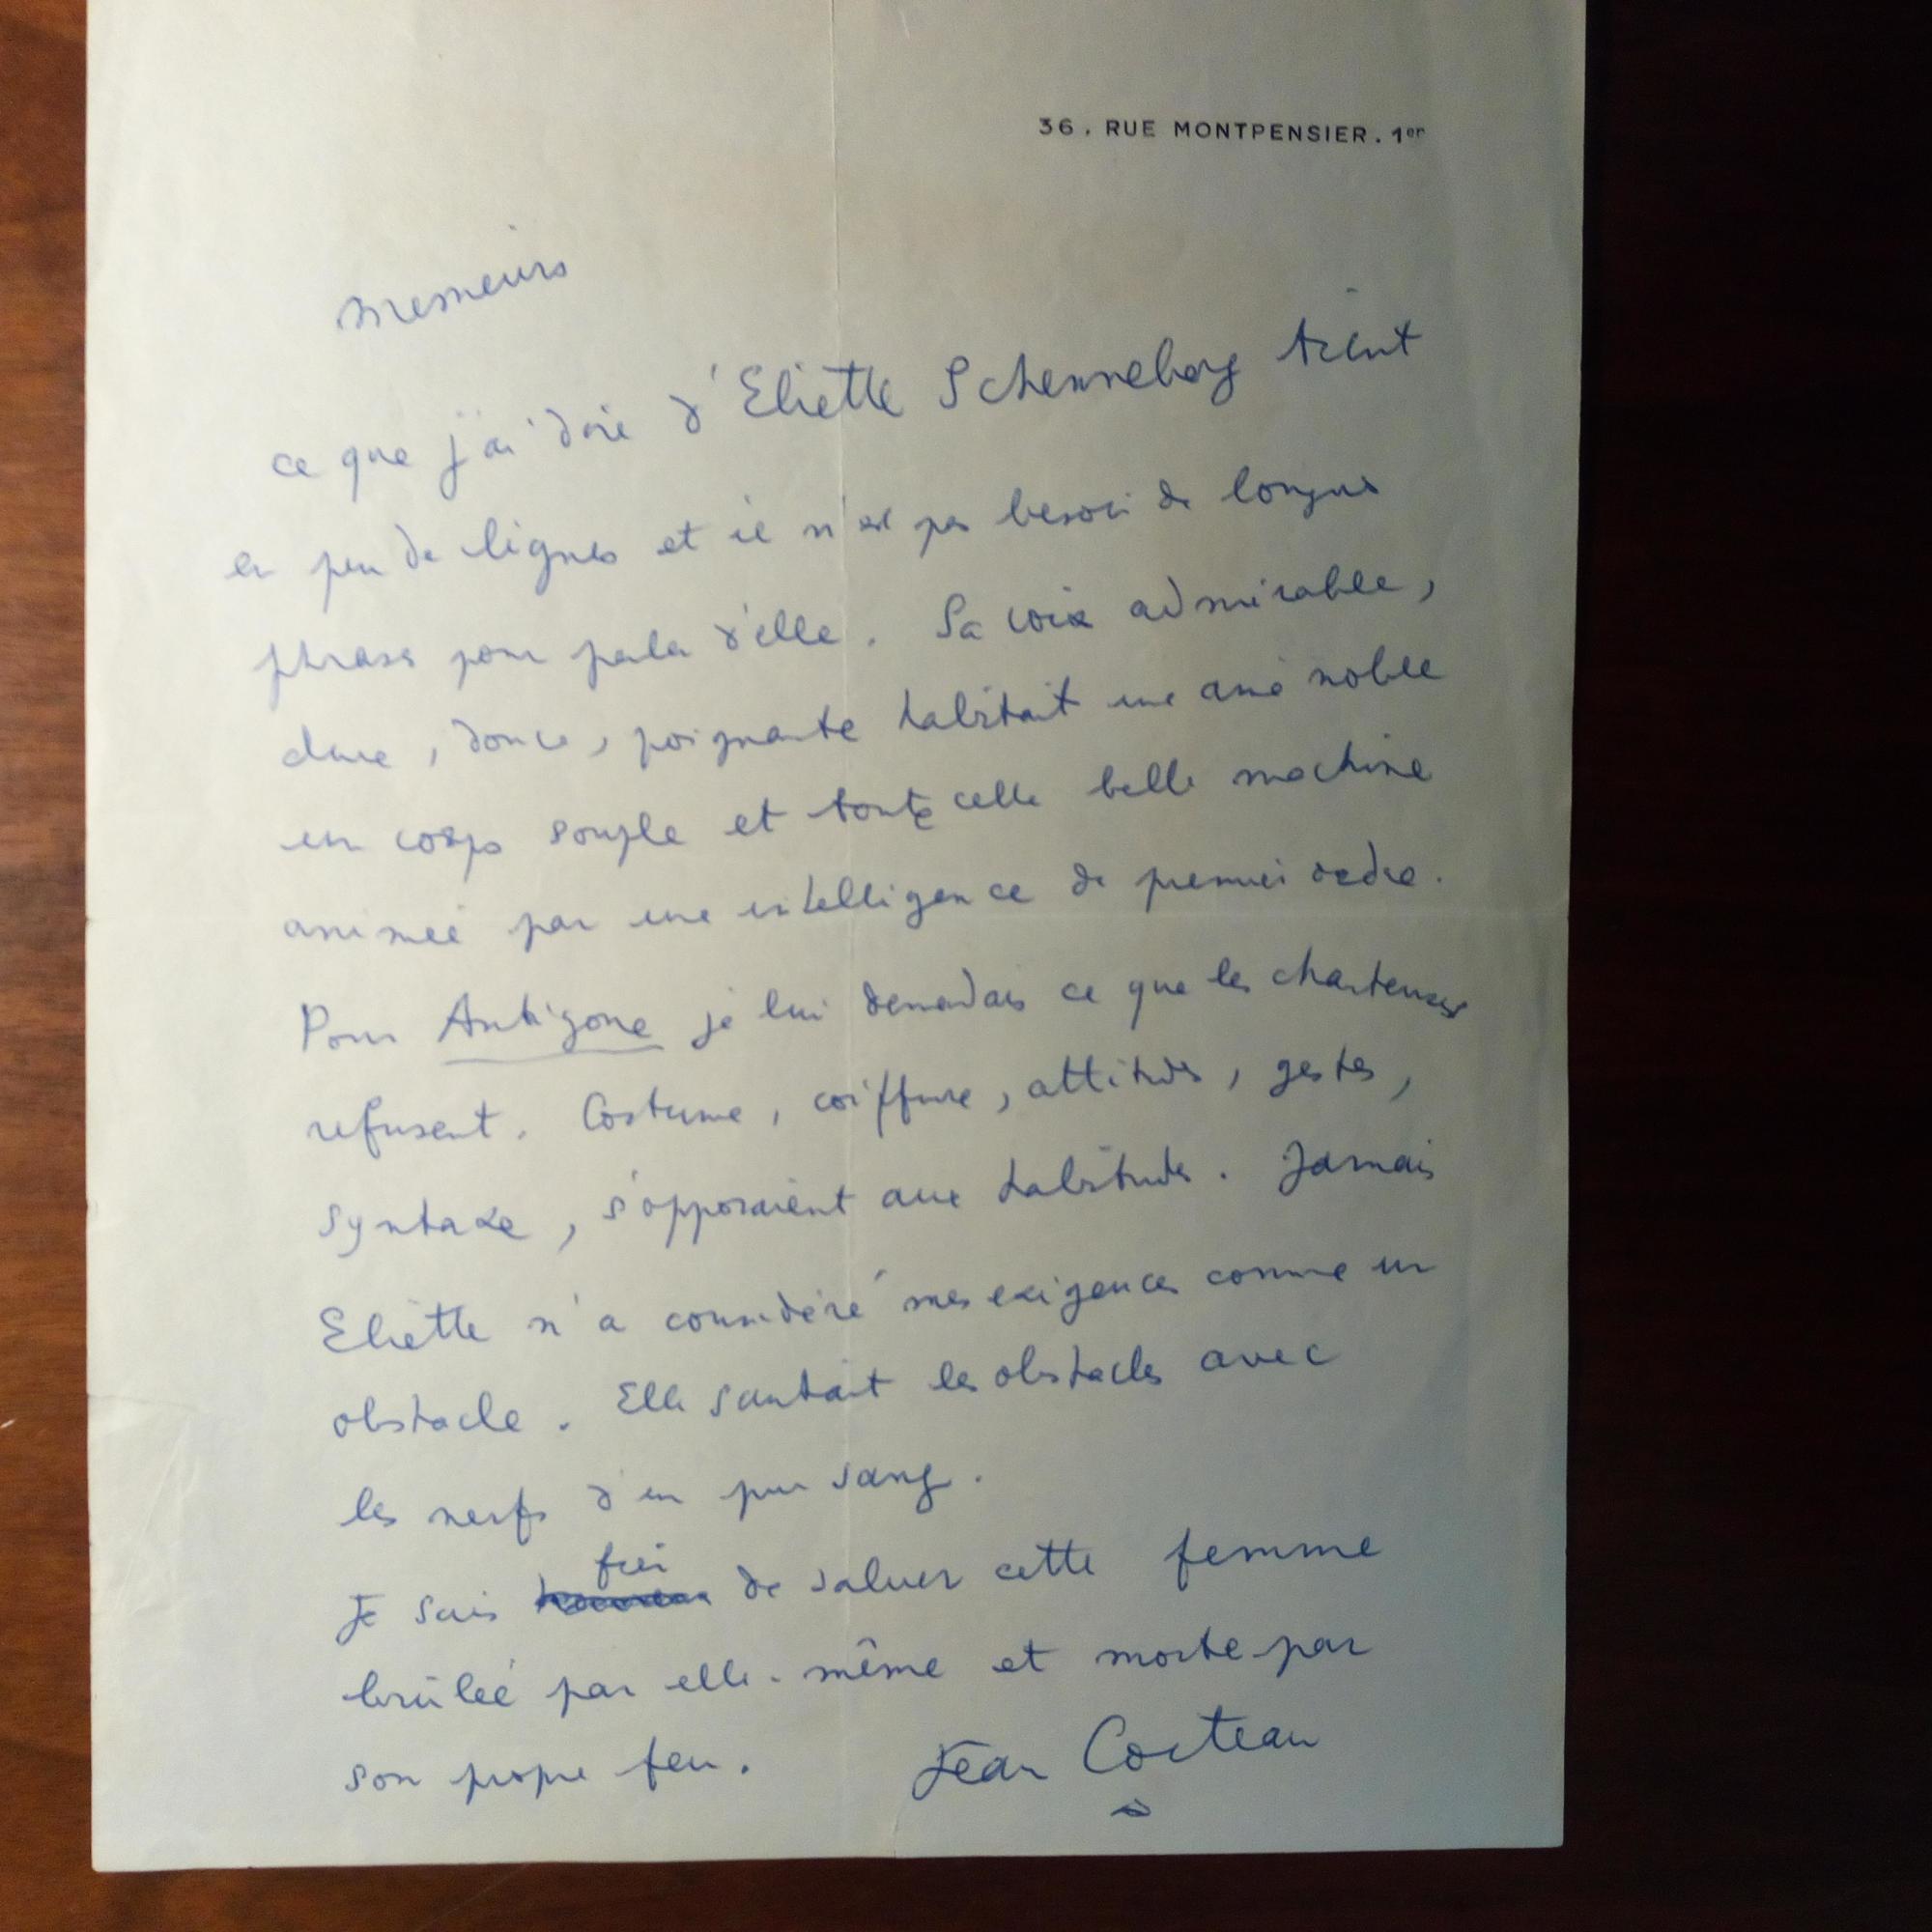 36. RUE MONTPENSIER. 1er
Messieurs
ce que j'ai à dire d'Eliette Schenneberg tient
en peu de lignes et il n'est pas besoin de longues
phrases pour parler d'elle. Sa voix admirable,
dure, douce, poignante habitait une âme noble
un corps souple et toute cette belle machine
animée par une intelligence de premier ordre.
Pour Antigone je lui demandais ce que les chanteuses
refusent. Costume, coiffure, attitudes, gestes,
syntaxe, s'opposaient aux habitudes. Jamais
Eliette n'a considéré mes exigences comme un
obstacle. Elle sautait les obstacles avec
les nerfs d'un pur sang.
fier
Je suis de saluer cette femme
brûlée par elle-même et morte par
son propre feu.
Jean Cocteau